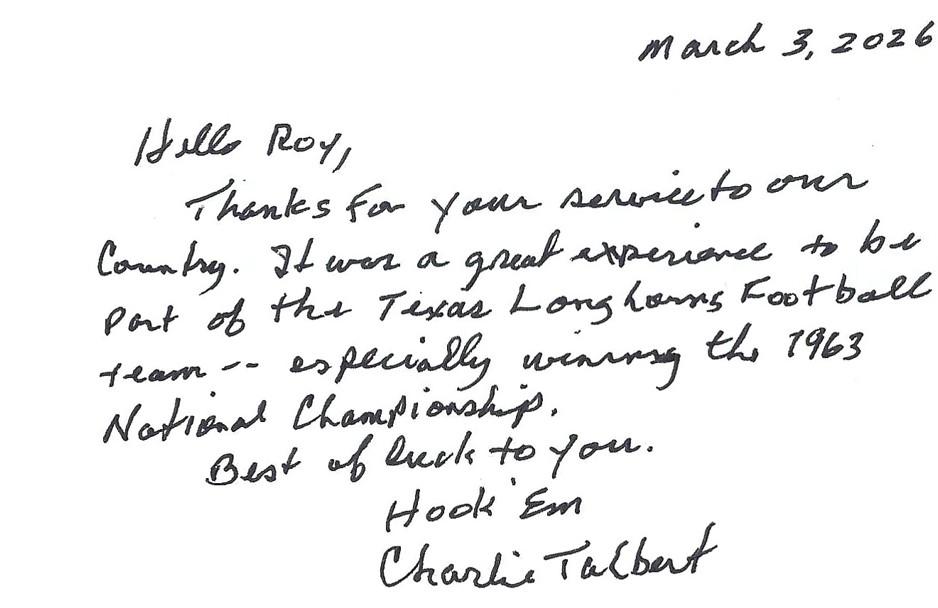 March 3, 2026
Hello Roy,
Thanks for your service to our
Country. It was a great experience to be
part of the Texas Longhorns Football
team -- especially winning the 1963
National Championship.
Best of luck to you.
Hook 'Em
Charlie Talbert